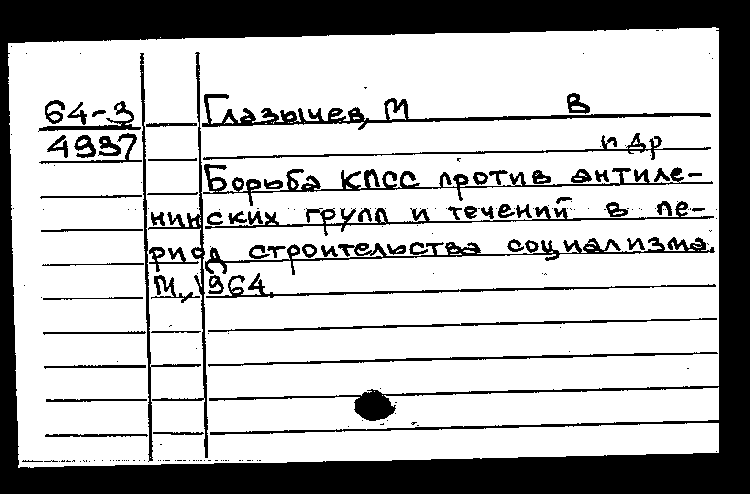 64-3 Глазычев, М В
4937 и др
Борьба КПСС против антиле-
нинских групп и течений в пе-
риод строительства социализма.
М., 1964.